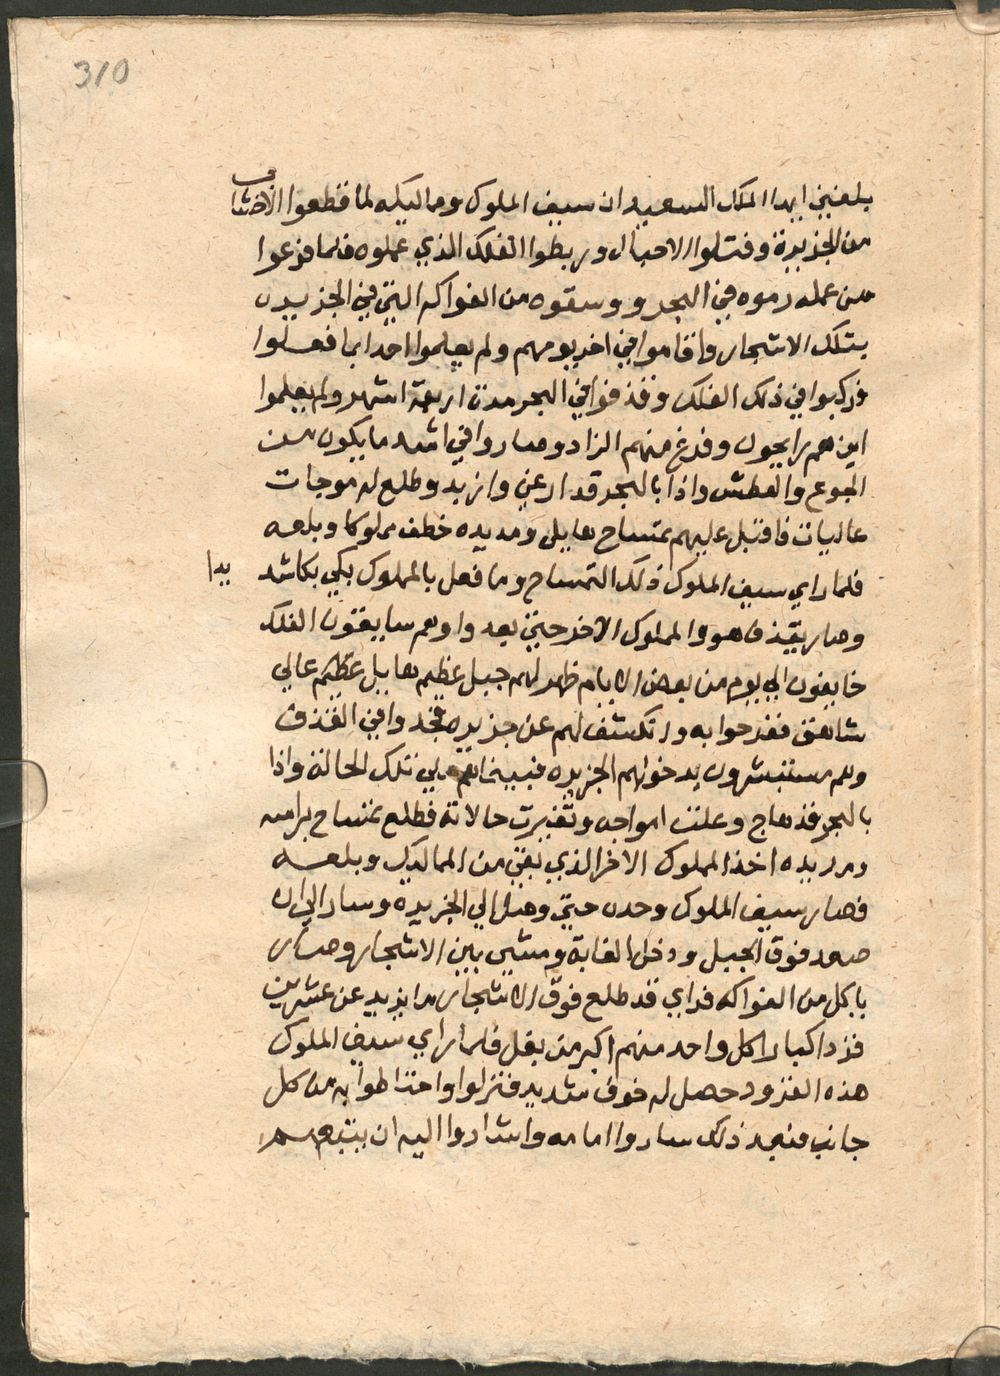 310
بلغني ايها الملك السعيد ان سيف الملوك ومماليكه لما قطعوا الاخشاب
من الجزيرة وفتلوا الاحبال وربطوا الفلك الذي عملوه فلما فرغوا
من عمله رموه في البحر ووسقوه من الفواكه التي في الجزيره
بتلك الاشجار واقاموا في اخر يومهم ولم يعلموا احدا بما فعلوا
وركبوا في ذلك الفلك وقذفوا في البحر مدة اربعة اشهر ولم يعلموا
اين هم رايحون وفرغ منهم الزاد وصاروا في اشد ما يكون من
الجوع والعطش واذا بالبحر قد ارغي وازبد وطلع له موجات
عاليات فاقبل عليهم تمساح هايل ومد يده خطف مملوكا وبلعه
فلما راي سيف الملوك ذلك التمساح وما فعل بالمملوك بكي بكا شديدا
وصار بقية هو والمملوك الاخر حتي بعدوا وهم سايقون الفلك
خايفون الي يوم من بعض الايام ظهر لهم جبل عظيم هايل عظيم عالي
شاهق ففرحوا به وانكشف لهم عن جزيره فجدوا في القذف
وهم مستبشرون بدخولهم الجزيره فبينما هم علي تلك الحالة واذا
بالبحر قد هاج وعلت امواجه وتغيرت حالاته فطلع تمساح براسه
ومد يده اخذ المملوك الاخر الذي بقي من المماليك وبلعه
فصار سيف الملوك وحده حتي وصل الي الجزيره وسار الي ان
صعد فوق الجبل ودخل الغابة ومشي بين الاشجار وصار
ياكل من الفواكه فراي قد طلع فوق الاشجار ما يزيد عن عشرين
قردا كبارا كل واحد منهم اكبر من بغل فلما راي سيف الملوك
هذه القرود حصل له خوف شديد فنزلوا واحتاطوا به من كل
جانب فبعد ذلك ساروا امامه واشاروا اليه ان يتبعهم